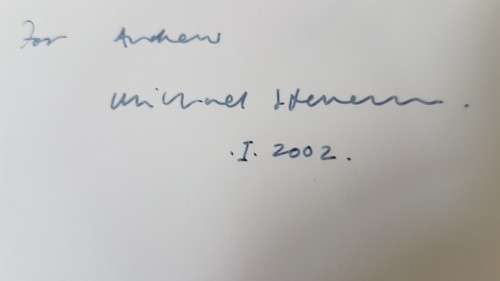 For Andrew
Michael
.I. 2002.